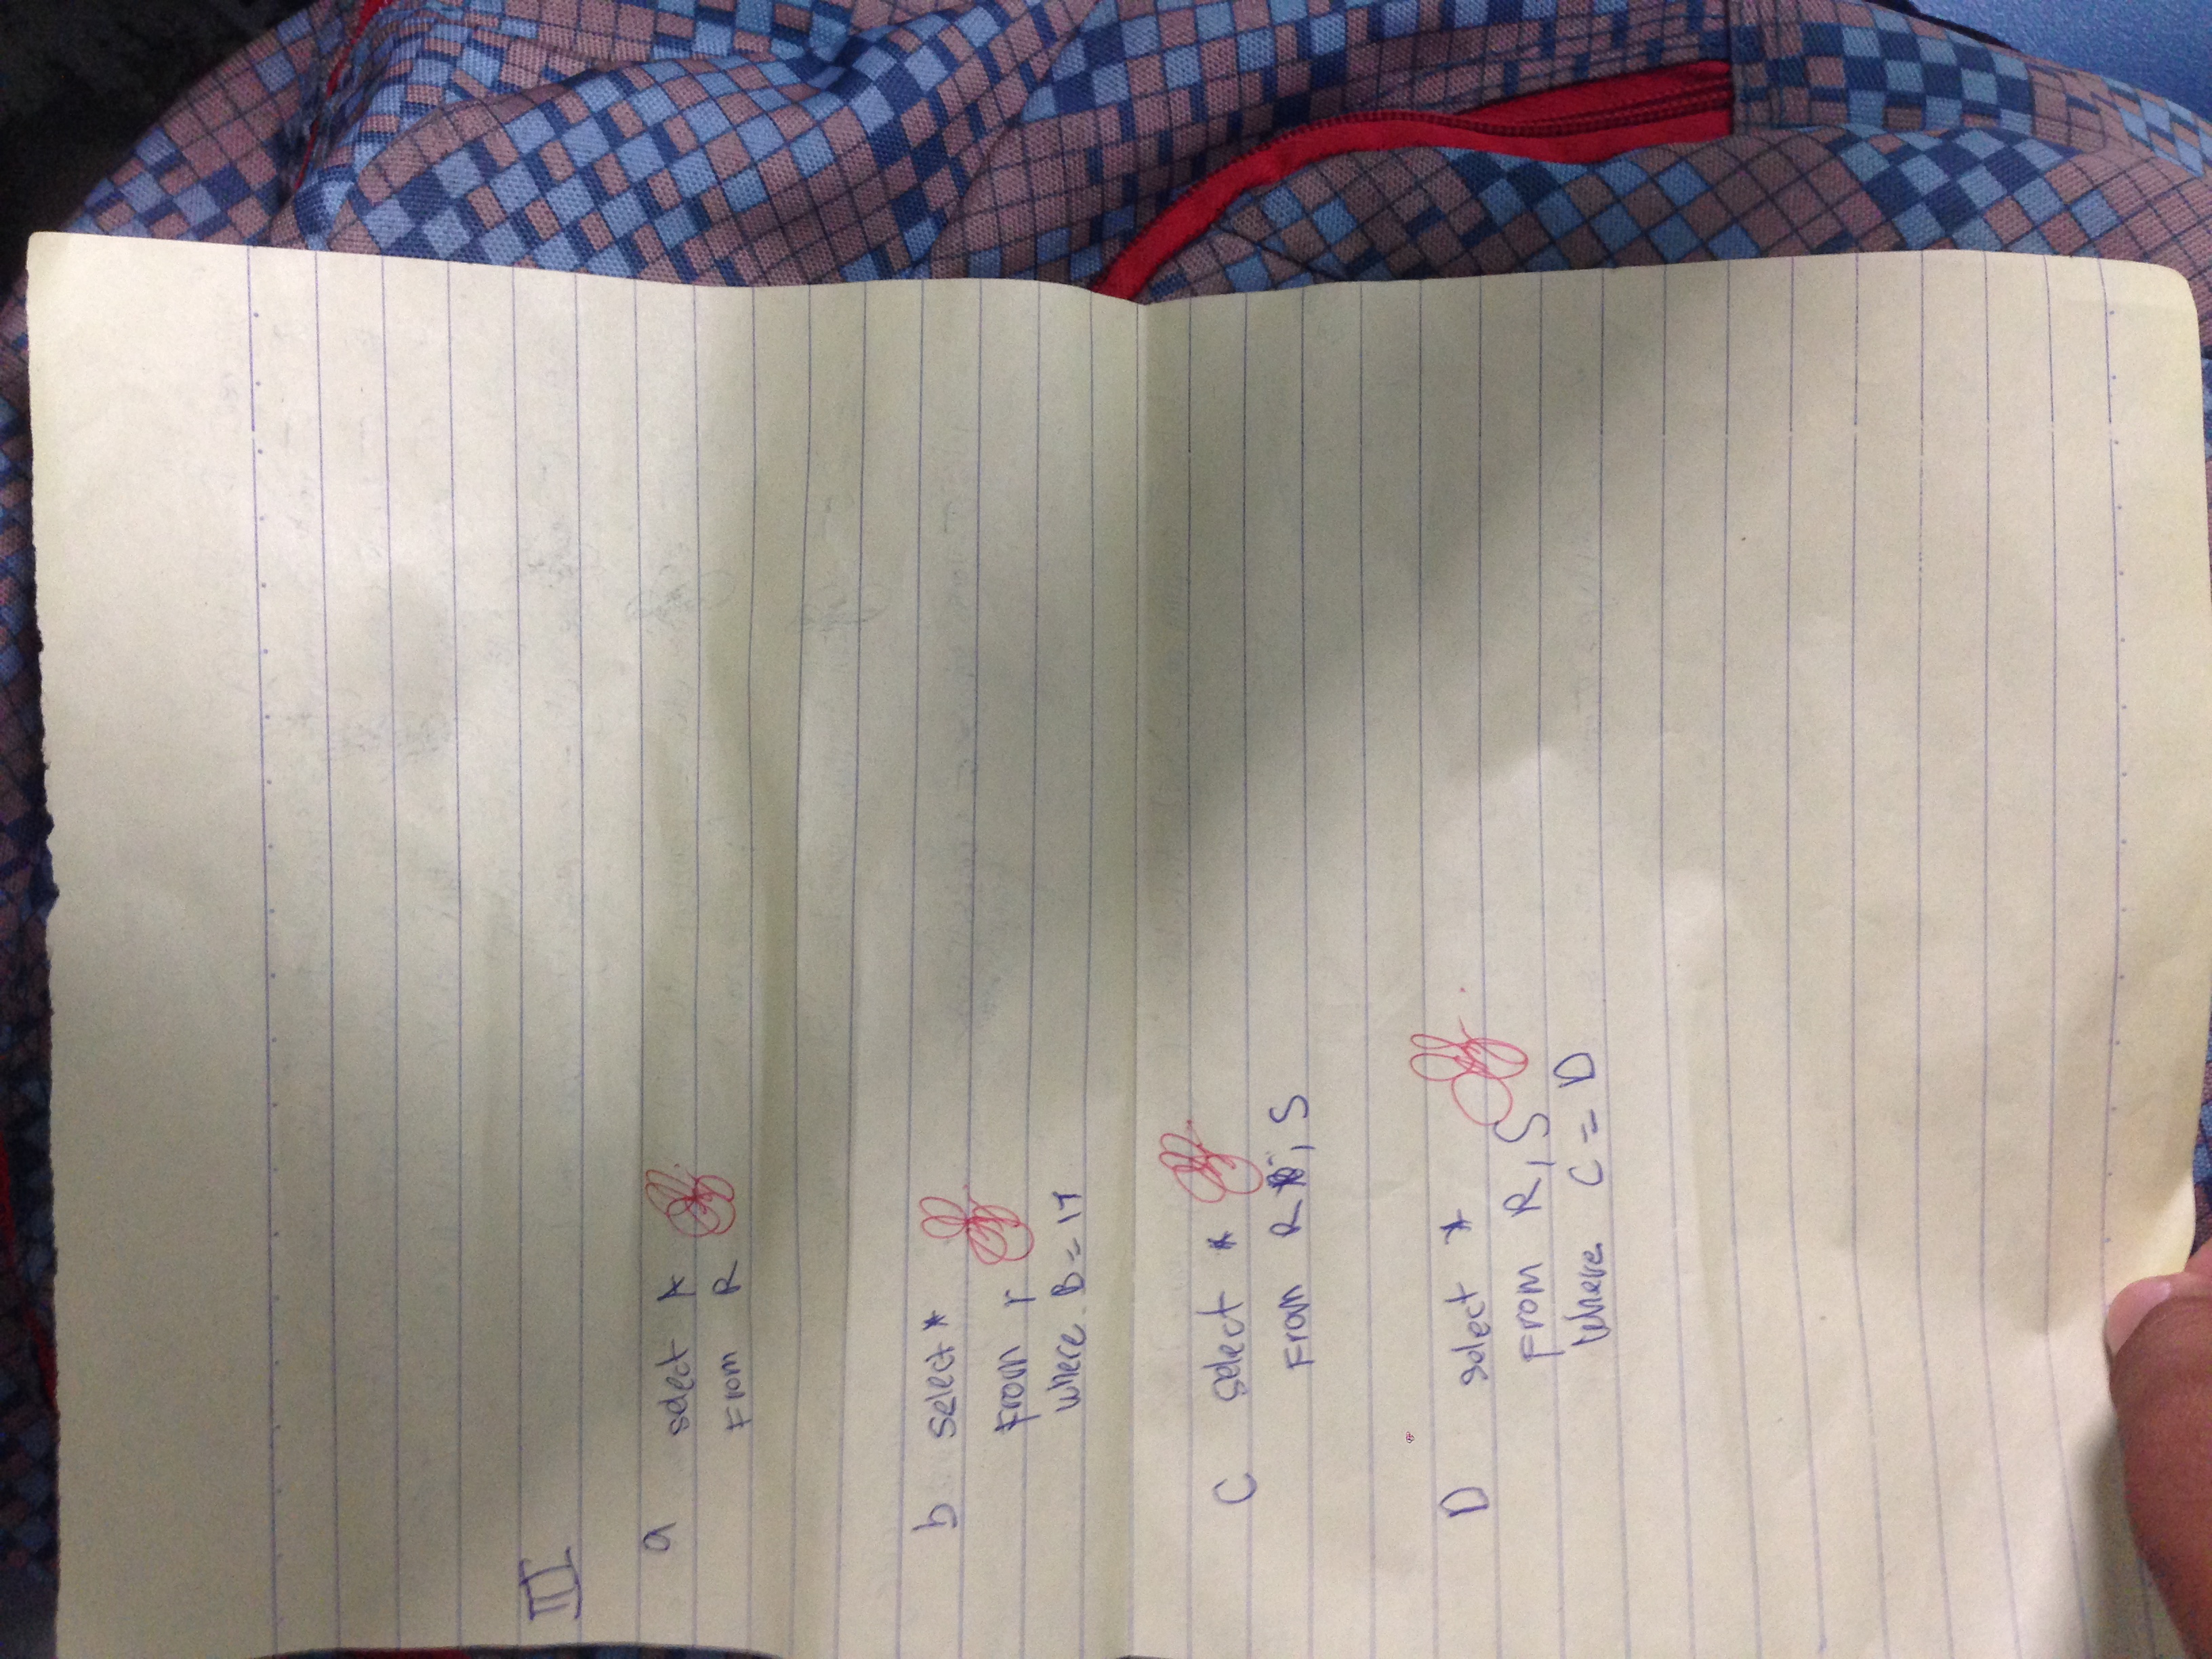 III
a select A
From R
b select *
From r
where B = 17
C select *
From R , S
D select *
From R, S
Where C = D